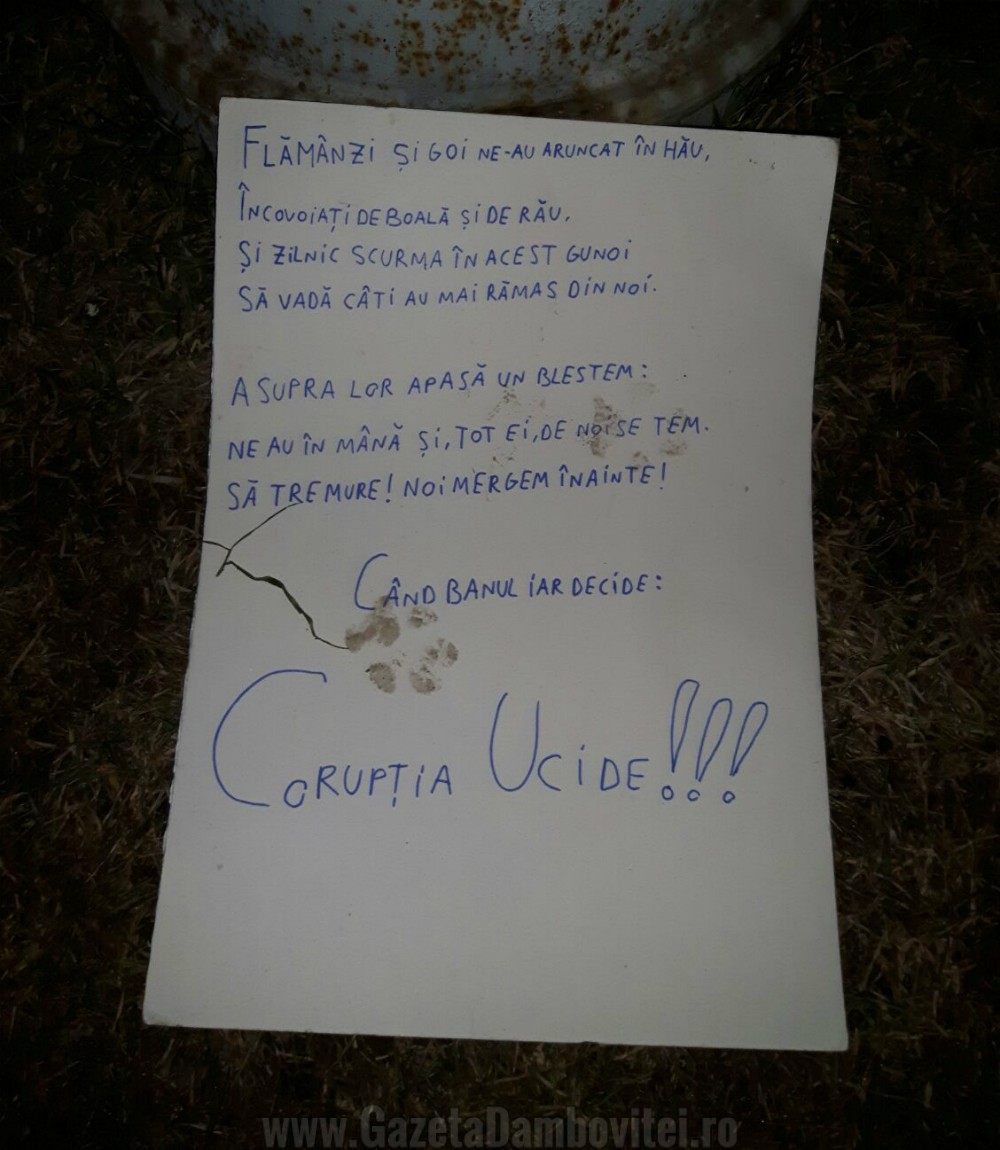 FLĂMÂNZI ȘI GOI NE-AU ARUNCAT ÎN HĂU,
ÎNCOVOIAȚI DE BOALĂ ȘI DE RĂU.
ȘI ZILNIC SCURMA ÎN ACEST GUNOI
SĂ VADĂ CÂTI AU MAI RĂMAS DIN NOI.
ASUPRA LOR APASĂ UN BLESTEM:
NE AU ÎN MÂNĂ ȘI, TOT EI, DE NOI SE TEM.
SĂ TREMURE! NOI MERGEM ÎNAINTE!
CÂND BANUL IAR DECIDE:
CORUPȚIA UCIDE!!!
www.GazetaDambovitei.ro